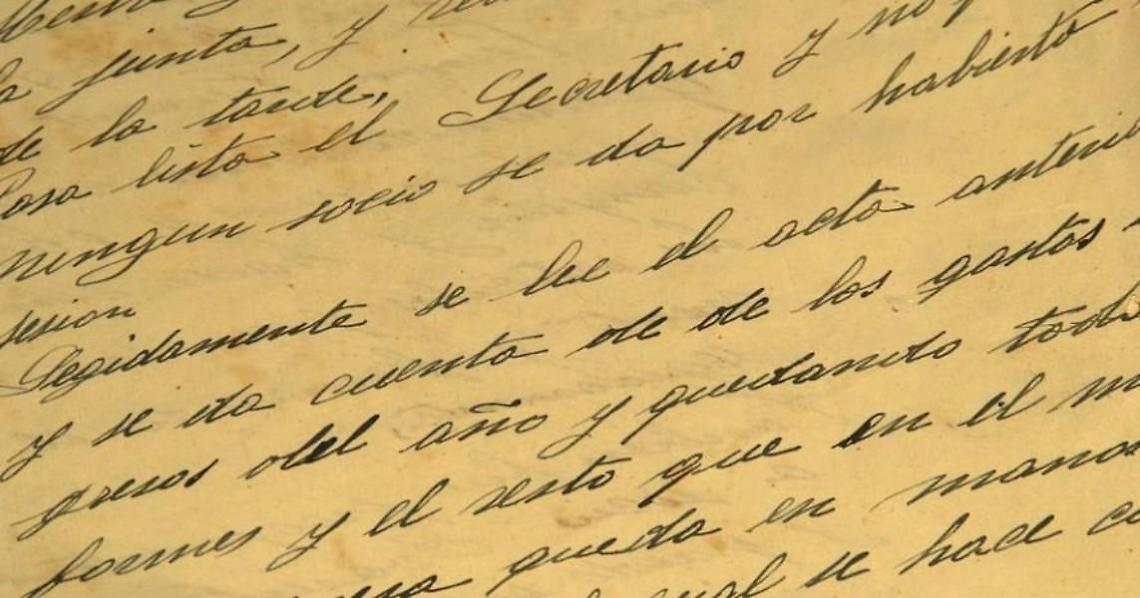 la junta, y
de la tarde,
Pasa lista el Secretario y no
ningun socio se da por habierta
sesion
Segidamente se lee el acta anterior
y se da cuenta de de los gastos
gresos del año y quedando todos
formes y el resto que en el
queda en manos
cual se hace